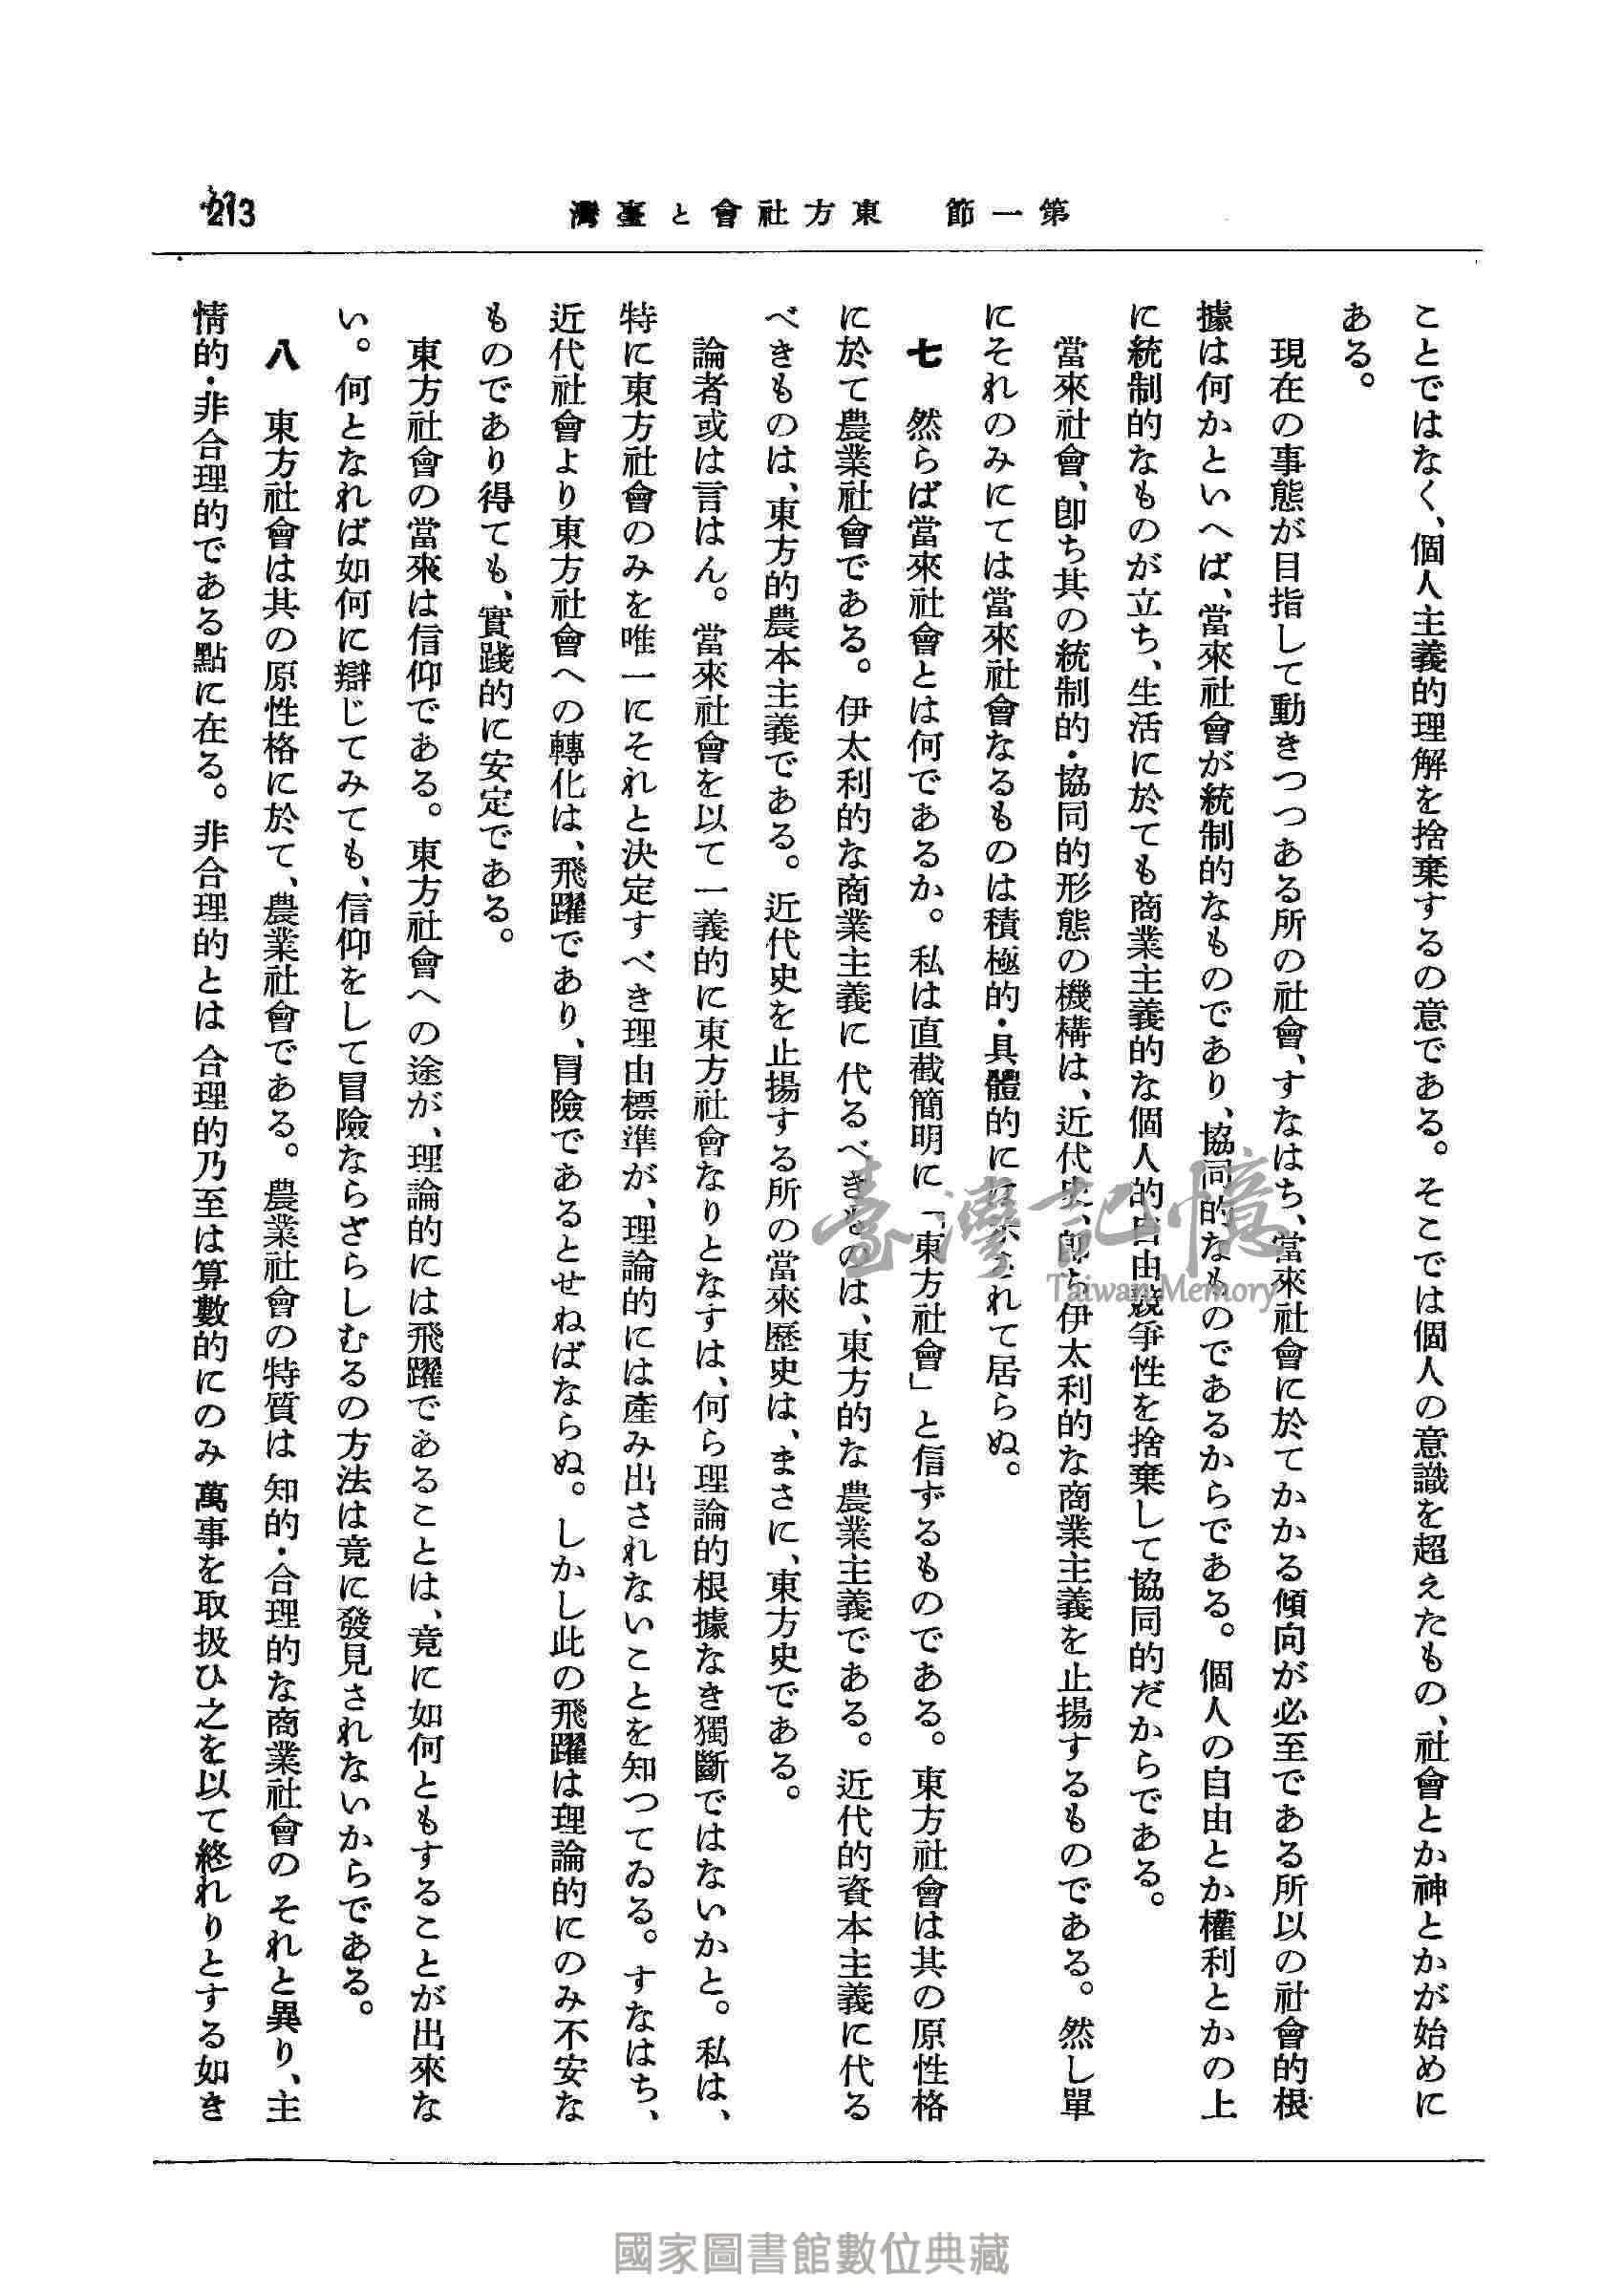 第一節　東方社會と臺灣
213
ことではなく、個人主義的理解を捨棄するの意である。そこでは個人の意識を超えたもの、社會とか神とかが始めに
ある。
現在の事態が目指して動きつつある所の社會、すなはち、當來社會に於てかかる傾向が必至である所以の社會的根
據は何かといへば、當來社會が統制的なものであり、協同的なものであるからである。個人の自由とか權利とかの上
に統制的なものが立ち、生活に於ても商業主義的な個人的自由競爭性を捨棄して協同的だからである。
當來社會、卽ち其の統制的・協同的形態の機構は、近代史、卽ち伊太利的な商業主義を止揚するものである。然し單
にそれのみにては當來社會なるものは積極的・具體的にれて居らぬ。
七　然らば當來社會とは何であるか。私は直截簡明に「東方社會」と信ずるものである。東方社會は其の原性格
に於て農業社會である。伊太利的な商業主義に代るべきものは、東方的な農業主義である。近代的資本主義に代る
べきものは、東方的農本主義である。近代史を止揚する所の當來歷史は、まさに、東方史である。
論者或は言はん。當來社會を以て一義的に東方社會なりとなすは、何ら理論的根據なき獨斷ではないかと。私は、
特に東方社會のみを唯一にそれと決定すべき理由標準が、理論的には產み出されないことを知つてゐる。すなはち、
近代社會より東方社會への轉化は、飛躍であり、冒險であるとせねばならぬ。しかし此の飛躍は理論的にのみ不安な
ものであり得ても、實踐的に安定である。
東方社會の當來は信仰である。東方社會への途が、理論的には飛躍であることは、竟に如何ともすることが出來な
い。何となれば如何に辯じてみても、信仰をして冒險ならざらしむるの方法は竟に發見されないからである。
八　東方社會は其の原性格に於て、農業社會である。農業社會の特質は知的・合理的な商業社會のそれと異り、主
情的・非合理的である點に在る。非合理的とは合理的乃至は算數的にのみ萬事を取扱ひ之を以て終れりとする如き
臺灣記憶
Taiwan Memory
國家圖書館數位典藏